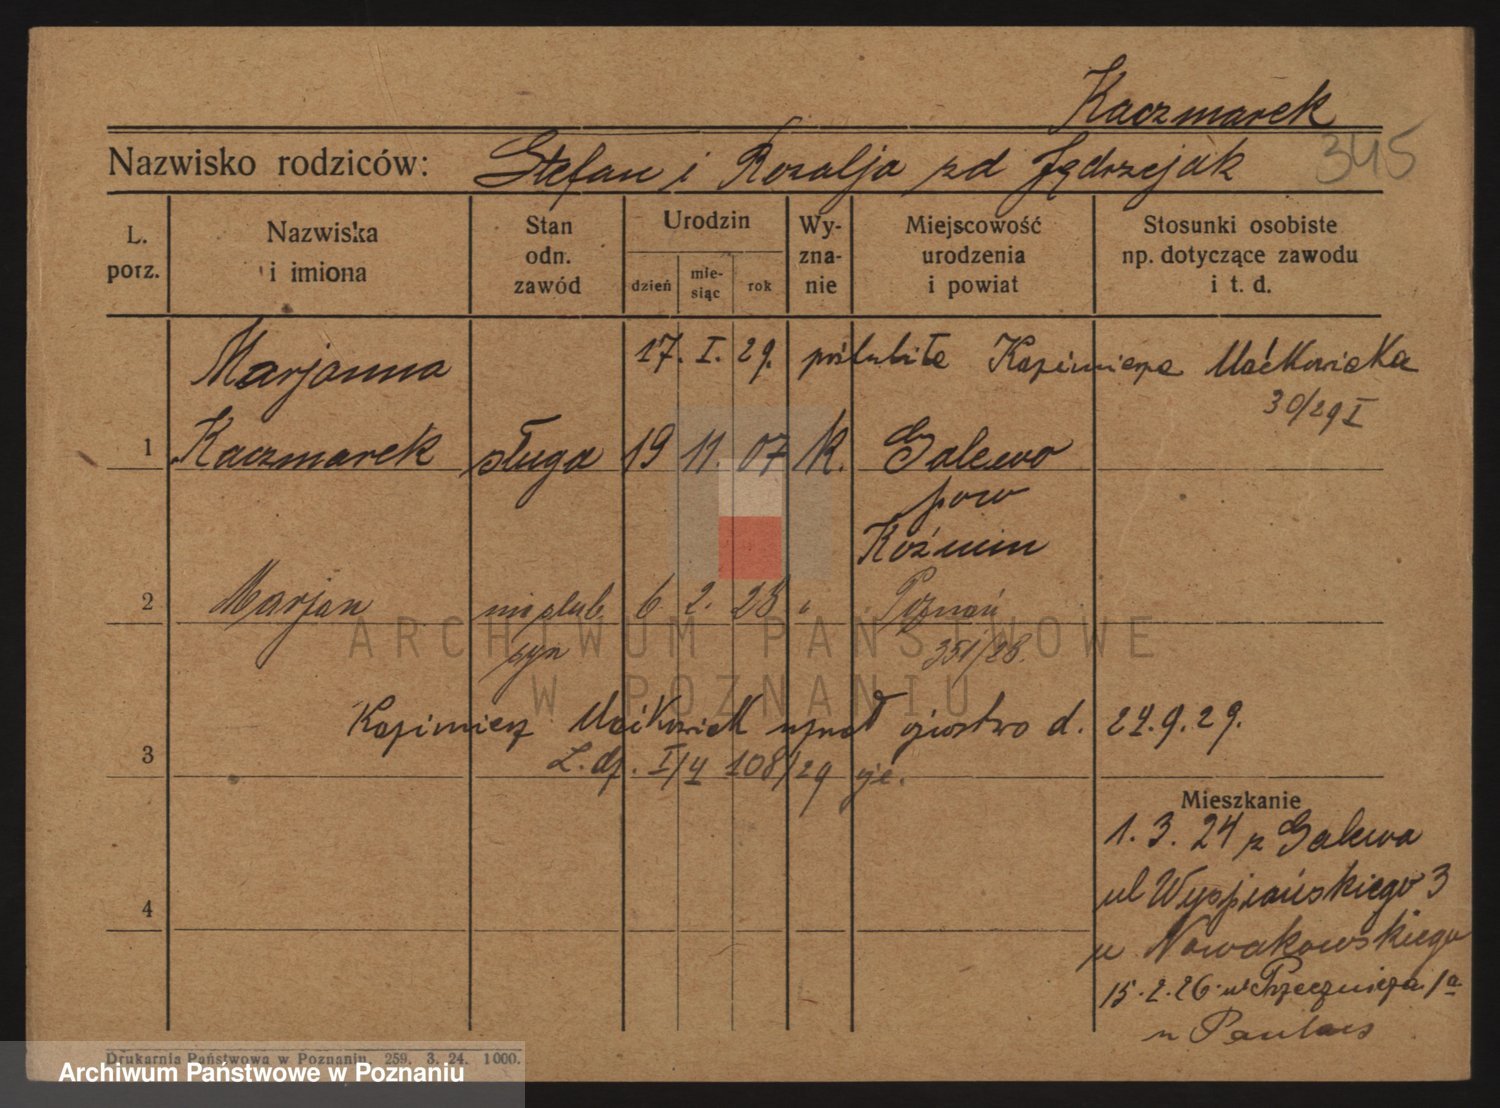 Kaczmarek
345
Nazwisko rodziców: Stefan i Rozalja zd Jędrzejak
L. porz.
Nazwiska i imiona
Stan odn. zawód
Urodzin
dzień
mie-siąc
rok
Wy-zna-nie
Miejscowość urodzenia i powiat
Stosunki osobiste np. dotyczące zawodu i t. d.
Marjanna 17. I. 29. poślubiła Kazimierza Maćkowiaka
30/29 I
1 Kaczmarek sługa 19 11 07 k. Galewo
pow
Koźmin
2 Marjan nieślub 6 2. 28 " Poznań
syn 351/28.
Kazimierz Maćkowiak uznał ojcostwo d. 24.9.29.
3 L. dz. I/4 108/29
Mieszkanie
1. 3. 24 z Galewa
4 ul Wyspiańskiego 3
u Nowakowskiego
15.2.26 ul Przecznica 1a
u
Drukarnia Państwowa w Poznaniu. 259. 3. 24. 1000.
ARCHIWUM PAŃSTWOWE
W POZNANIU
Archiwum Państwowe w Poznaniu